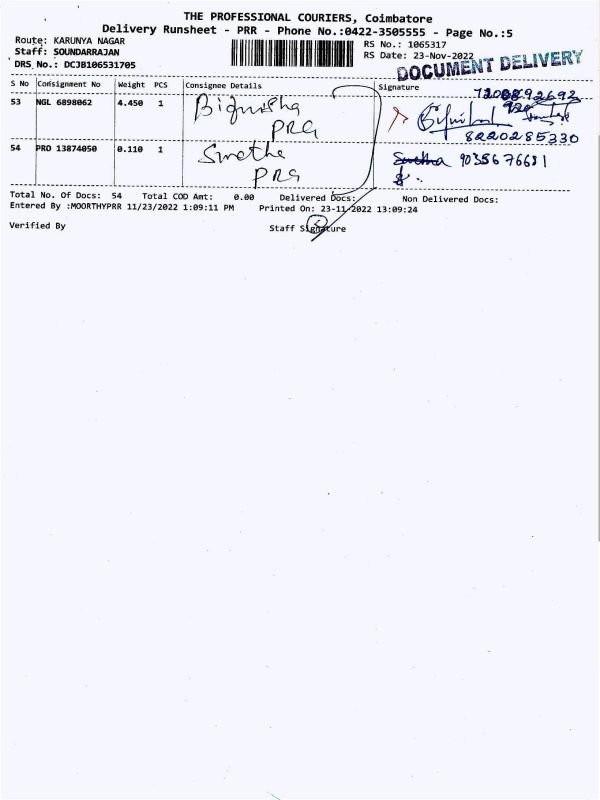 THE PROFESSIONAL COURIERS, Coimbatore
Delivery Runsheet - PRR - Phone No.:0422-3505555 - Page No.:5
Route: KARUNYA NAGAR
Staff: SOUNDARRAJAN
DRS No.: DCJB106531705
RS No.: 1065317
RS Date: 23-Nov-2022
DOCUMENT DELIVERY
S No Consignment No Weight PCS Consignee Details Signature
53 NGL 6898062 4.450 1
PRG
8220285330
54 PRO 13874050 0.110 1 Swetha Swetha
PRG
Total No. Of Docs: 54 Total COD Amt: 0.00 Delivered Docs: Non Delivered Docs:
Entered By :MOORTHYPRR 11/23/2022 1:09:11 PM Printed On: 23-11-2022 13:09:24
Verified By Staff Signature